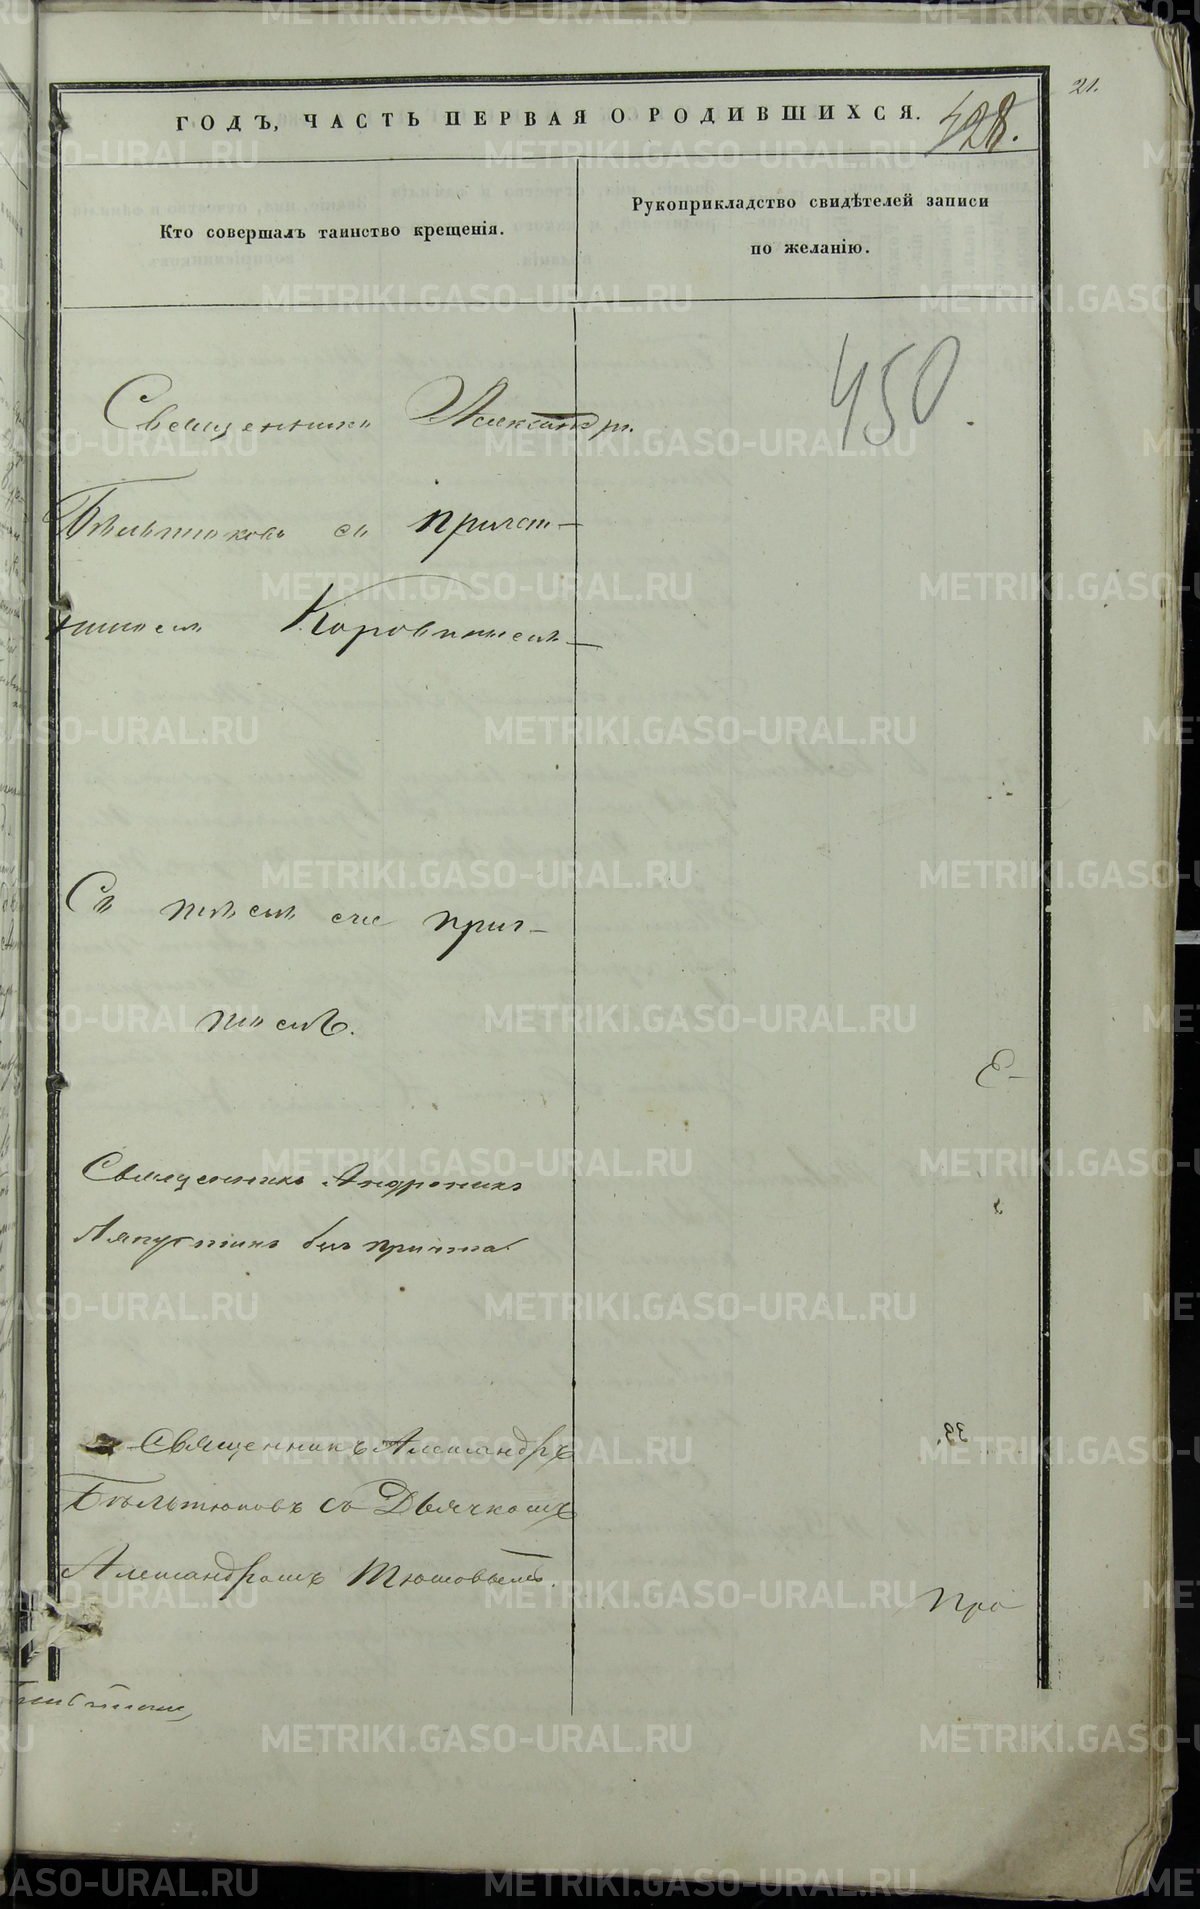 21.
ГОДЪ, ЧАСТЬ ПЕРВАЯ О РОДИВШИХСЯ.
428.
Кто совершалъ таинство крещенія.
Рукоприкладство свидѣтелей записи
по желанію.
450.
Священникъ Александръ
Бѣльтюковъ съ причет-
никомъ Коровинымъ
Съ тѣмъ же прич-
томъ.
Е-
Священникъ Андроникъ
Ляпустинъ безъ причта
Священникъ Александръ
Бѣльтюковъ съ Дьячкомъ
Александромъ Тюшовымъ.
Про
METRIKI.GASO-URAL.RU